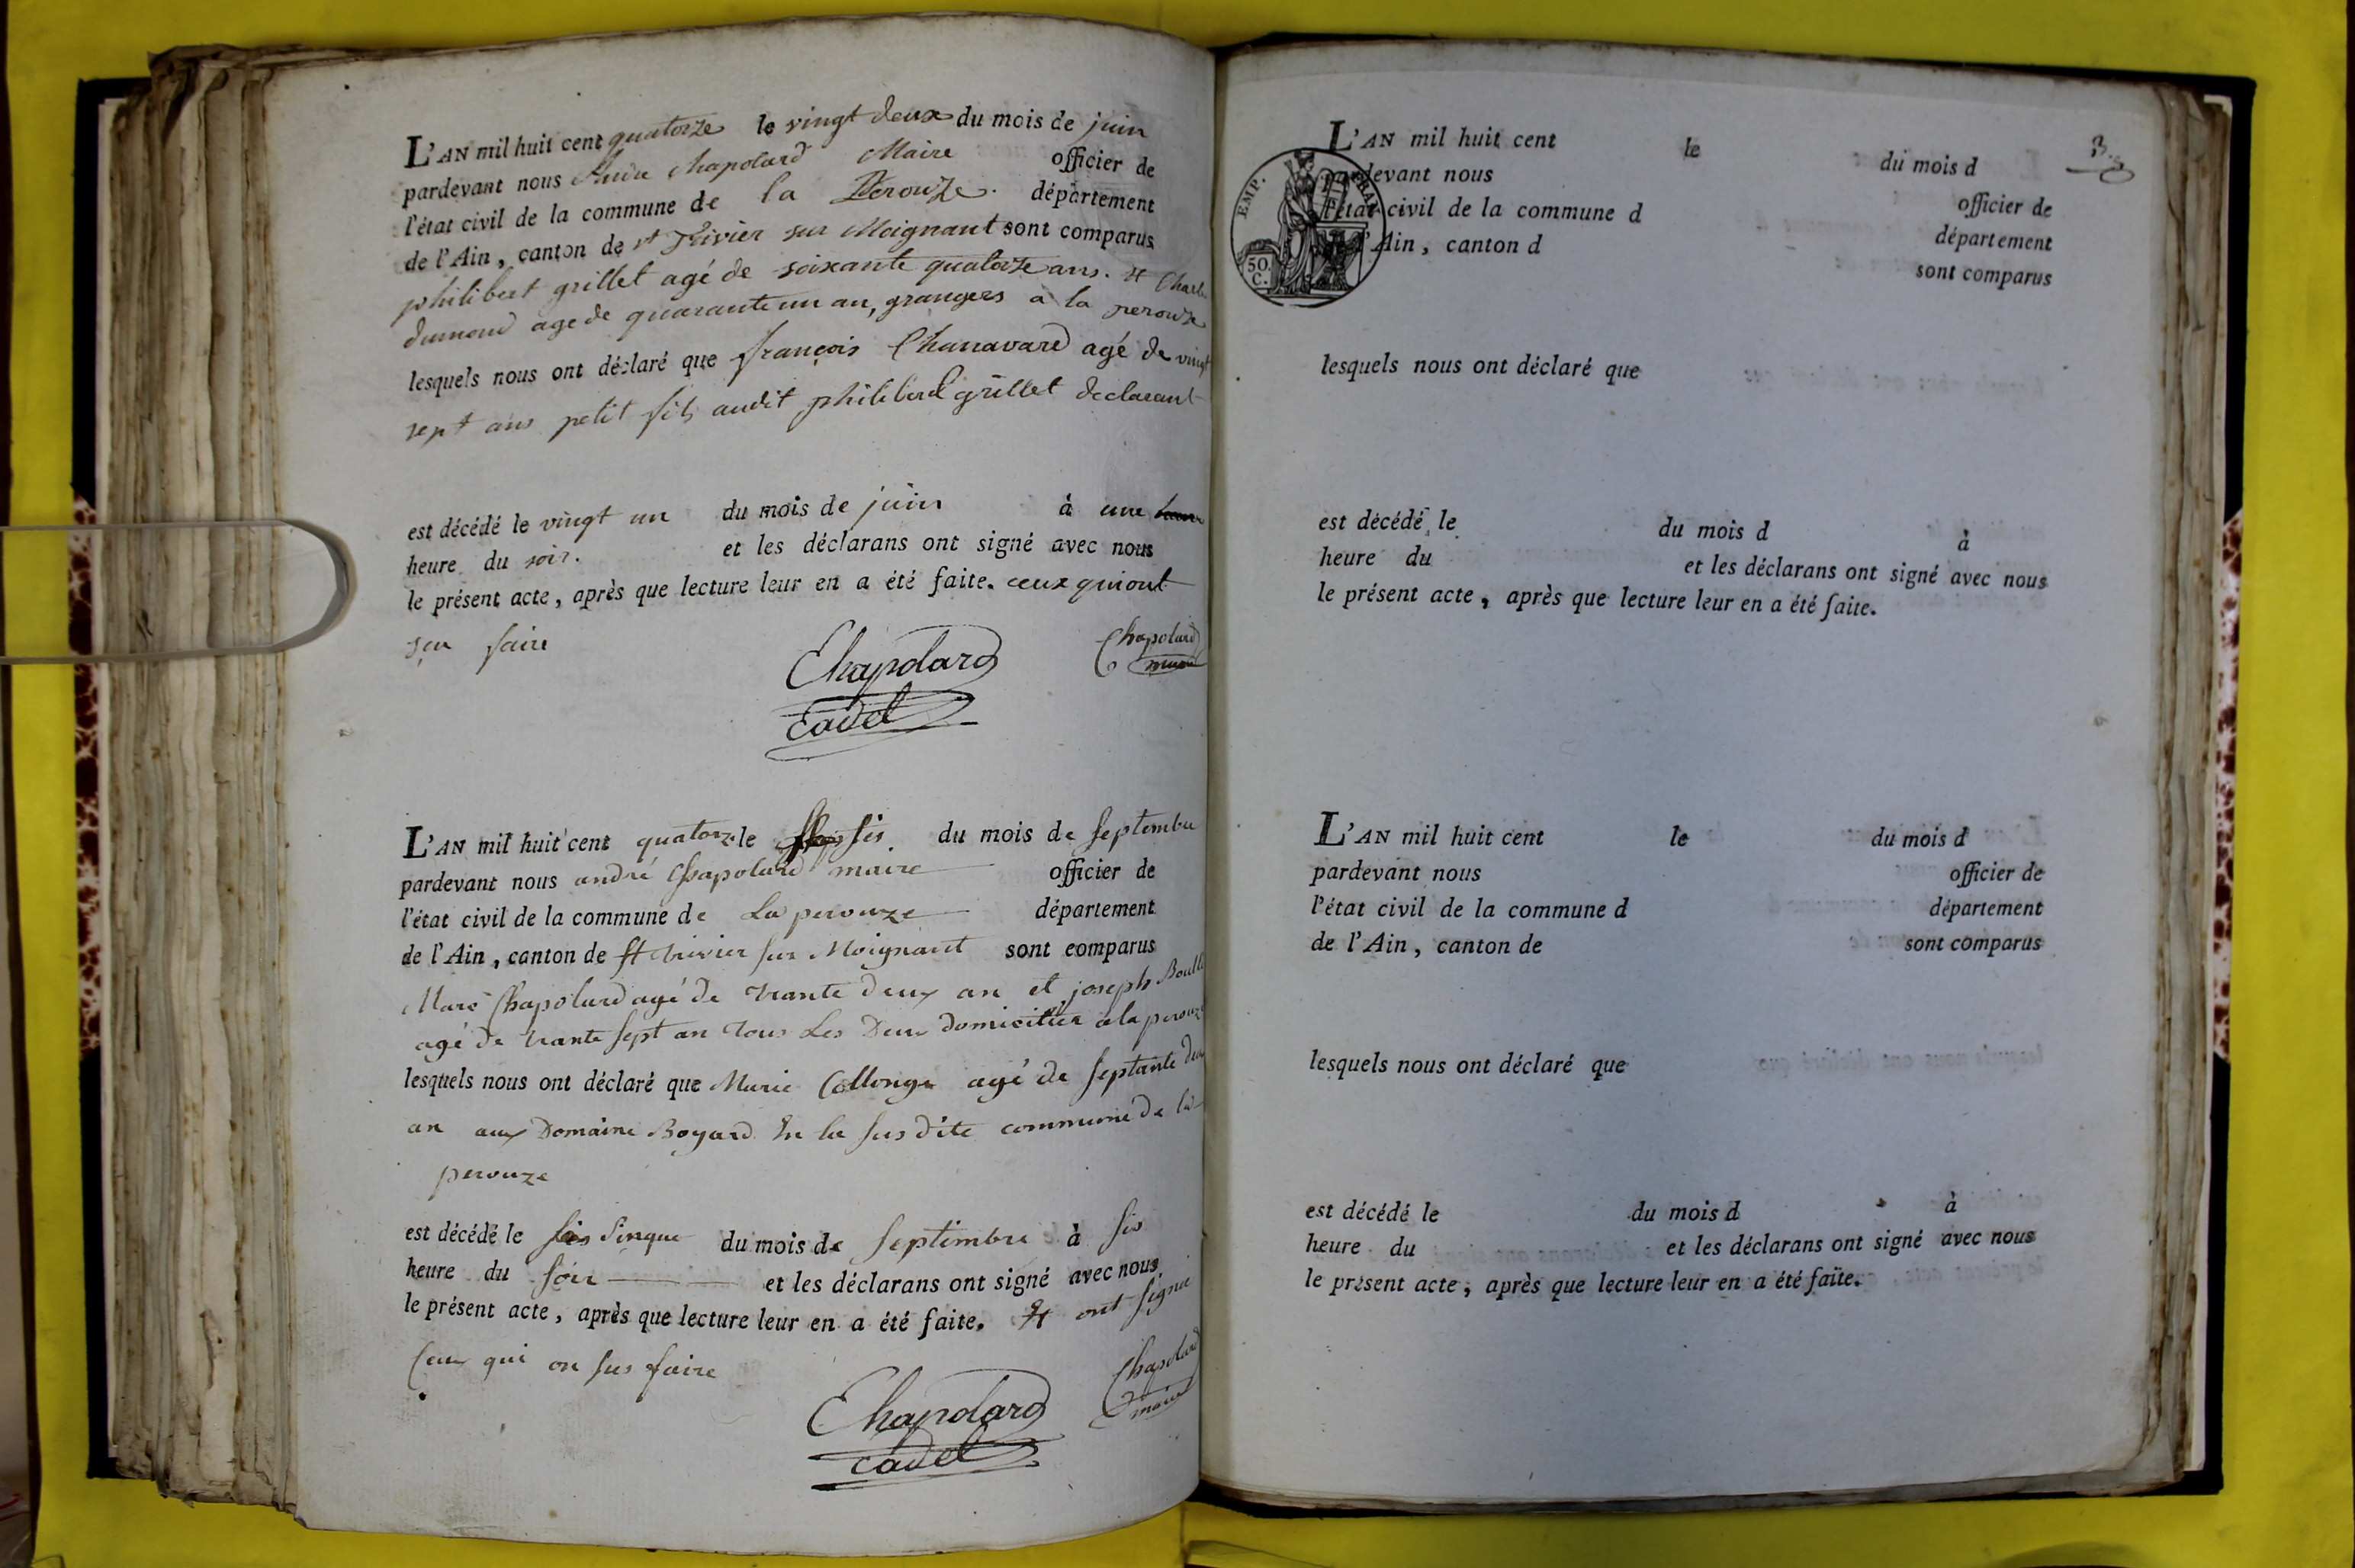 L'AN mil huit cent quatorze le vingt deux du mois de juin
pardevant nous André Chapolard Maire officier de
l'état civil de la commune de la Perouze. département
de l'Ain, canton de st Trivier sur Moignant sont comparus
philibert grillet agé de soixante quatorze ans. et Charles
dumond age de quarante un an, grangers a la perouze
lesquels nous ont déclaré que françois Chanavard agé de vingt
sept ans petit fils audit philibert grillet declarant
est décédé le vingt un du mois de juin à une
heure du soir. et les déclarans ont signé avec nous
le présent acte, après que lecture leur en a été faite. ceux qui ont
sçu faire
Chapolard
maire
Chapolard
Cadet
L'AN mil huit cent quatorze le sis du mois de septembre
pardevant nous andré Chapolard maire officier de
l'état civil de la commune de La perouze département
de l'Ain, canton de St trivier sur Moignant sont comparus
Marc Chapolard agé de trante deux an et joseph
agé de trante sept an tous Les Deux domicilier a la perouze
lesquels nous ont déclaré que Marie Collonge agé de septante deux
an aux Domaine Boyard En la susdite commune de la
perouze
est décédé le sinque du mois de septembre à sis
heure du soir et les déclarans ont signé avec nous
le présent acte, après que lecture leur en a été faite. Et ont signié
Ceux qui on sus faire
Chapolard
maire
Chapolard
Cadet
L'AN mil huit cent le du mois d
pardevant nous officier de
l'état civil de la commune d département
de l'Ain, canton d sont comparus
EMP. FRAN.
50.
C.
lesquels nous ont déclaré que
est décédé le du mois d à
heure du et les déclarans ont signé avec nous
le présent acte, après que lecture leur en a été faite.
L'AN mil huit cent le du mois d
pardevant nous officier de
l'état civil de la commune d département
de l'Ain, canton de sont comparus
lesquels nous ont déclaré que
est décédé le du mois d à
heure du et les déclarans ont signé avec nous
le présent acte, après que lecture leur en a été faite.